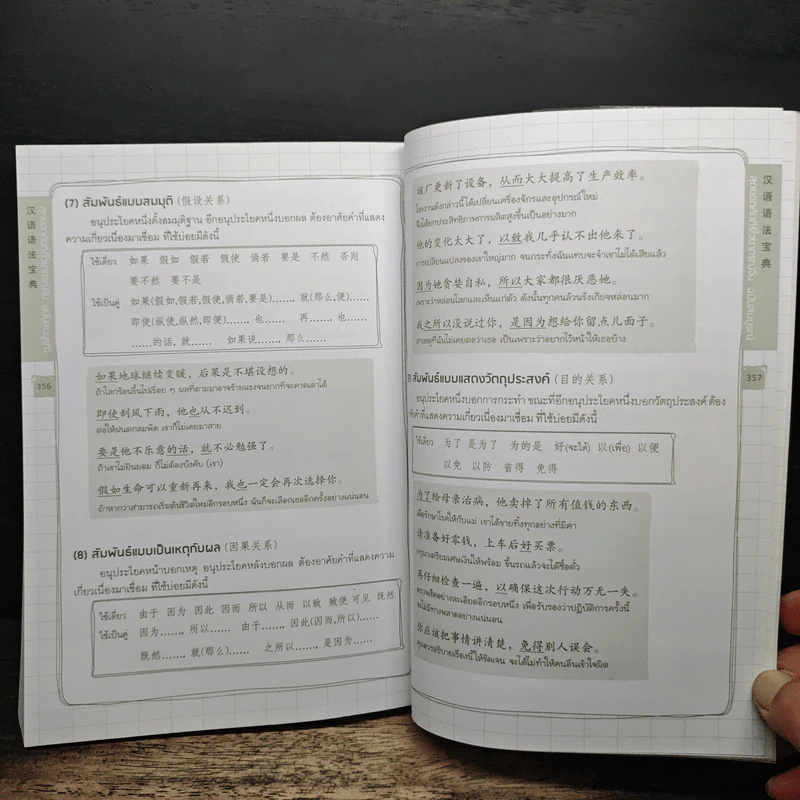 汉语语法宝典
356
(7) สัมพันธ์แบบสมมุติ (假设关系)
อนุประโยคหนึ่งตั้งสมมุติฐาน อีกอนุประโยคหนึ่งบอกผล ต้องอาศัยคำที่แสดง
ความเกี่ยวเนื่องมาเชื่อม ที่ใช้บ่อยมีดังนี้
ใช้เดี่ยว 如果 假如 假若 假使 倘若 要是 不然 否则
要不然 要不是
ใช้เป็นคู่ 如果(假如,假若,假使,倘若,要是)…… 就(那么,便)……
即使(纵使,纵然,即便)…… 也…… 再…… 也……
……的话, 就…… 如果说…… 那么……
如果地球继续变暖，后果是不堪设想的。
ถ้าโลกร้อนขึ้นไปเรื่อย ๆ ผลที่ตามมาอาจร้ายแรงจนยากที่จะคาดเดาได้
即使刮风下雨，他也从不迟到。
ต่อให้ฝนตกลมพัด เขาก็ไม่เคยมาสาย
要是他不乐意的话，就不必勉强了。
ถ้าเขาไม่ยินยอม ก็ไม่ต้องบังคับ (เขา)
假如生命可以重新再来，我也一定会再次选择你。
ถ้าหากว่าสามารถเริ่มต้นชีวิตใหม่อีกรอบหนึ่ง ฉันก็จะเลือกเธออีกครั้งอย่างแน่นอน
(8) สัมพันธ์แบบเป็นเหตุกับผล (因果关系)
อนุประโยคหน้าบอกเหตุ อนุประโยคหลังบอกผล ต้องอาศัยคำที่แสดงความ
เกี่ยวเนื่องมาเชื่อม ที่ใช้บ่อยมีดังนี้
ใช้เดี่ยว 由于 因为 因此 因而 所以 从而 以致 致使 可见 既然
ใช้เป็นคู่ 因为……, 所以…… 由于……, 因此(因而,所以)……
既然……, 就(那么)…… 之所以……, 是因为……
该厂更新了设备，从而大大提高了生产效率。
โรงงานดังกล่าวนี้ได้เปลี่ยนเครื่องจักรและอุปกรณ์ใหม่
จึงได้ยกประสิทธิภาพการผลิตสูงขึ้นเป็นอย่างมาก
他的变化太大了，以致我几乎认不出他来了。
การเปลี่ยนแปลงของเขาใหญ่มาก จนกระทั่งฉันแทบจะจำเขาไม่ได้เสียแล้ว
因为她贪婪自私，所以大家都很厌恶她。
เพราะว่าหล่อนโลภและเห็นแก่ตัว ดังนั้นทุกคนล้วนรังเกียจหล่อนมาก
我之所以没说过你，是因为想给你留点儿面子。
สาเหตุที่ฉันไม่เคยต่อว่าเธอ เป็นเพราะว่าอยากไว้หน้าให้เธอบ้าง
9) สัมพันธ์แบบแสดงวัตถุประสงค์ (目的关系)
อนุประโยคหนึ่งบอกการกระทำ ขณะที่อีกอนุประโยคหนึ่งบอกวัตถุประสงค์ ต้อง
คำที่แสดงความเกี่ยวเนื่องมาเชื่อม ที่ใช้บ่อยมีดังนี้
ใช้เดี่ยว 为了 是为了 为的是 好(จะได้) 以(เพื่อ) 以便
以免 以防 省得 免得
为了给母亲治病，他卖掉了所有值钱的东西。
เพื่อรักษาโรคให้กับแม่ เขาได้ขายทิ้งทุกอย่างที่มีค่า
请准备好零钱，上车后好买票。
กรุณาเตรียมเศษเงินให้พร้อม ขึ้นรถแล้วจะได้ซื้อตั๋ว
再仔细检查一遍，以确保这次行动万无一失。
ตรวจสอบอย่างละเอียดอีกรอบหนึ่ง เพื่อรับรองว่าปฏิบัติการครั้งนี้
จะไม่มีทางพลาดอย่างแน่นอน
你应该把事情讲清楚，免得别人误会。
คุณควรอธิบายเรื่องนี้ให้ชัดเจน จะได้ไม่ทำให้คนอื่นเข้าใจผิด
汉语语法宝典
357